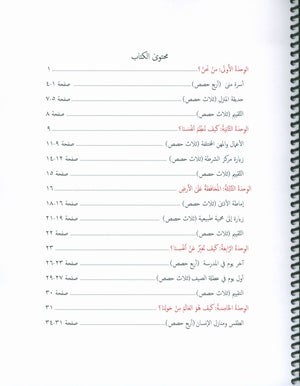 محتوى الكتاب
الوحدة الأولى: من نحن؟ ١
أسرة منى (أربع حصص) صفحة ١-٤
حديقة المنزل (ثلاث حصص) صفحة ٥-٧
التقييم (ثلاث حصص) صفحة ٨
الوحدة الثانية: كيف ننظم أنفسنا؟ ٩
الأعمال والمهن المختلفة (ثلاث حصص) صفحة ٩-١١
زيارة مركز الشرطة (ثلاث حصص) صفحة ١٢-١٤
التقييم (ثلاث حصص) صفحة ١٥
الوحدة الثالثة: المحافظة على الأرض ١٦
إماطة الأذى (ثلاث حصص) صفحة ١٦-١٨
زيارة إلى محمية طبيعية (ثلاث حصص) صفحة ١٩-٢١
التقييم (ثلاث حصص) صفحة ٢٢
الوحدة الرابعة: كيف نعبر عن أنفسنا؟ ٢٣
آخر يوم في المدرسة (أربع حصص) صفحة ٢٣-٢٦
أول يوم في عطلة الصيف (ثلاث حصص) صفحة ٢٧-٢٩
التقييم (ثلاث حصص) صفحة ٣٠
الوحدة الخامسة: كيف هو العالم من حولنا؟ ٣١
الطقس ومنازل الإنسان (أربع حصص) صفحة ٣١-٣٤